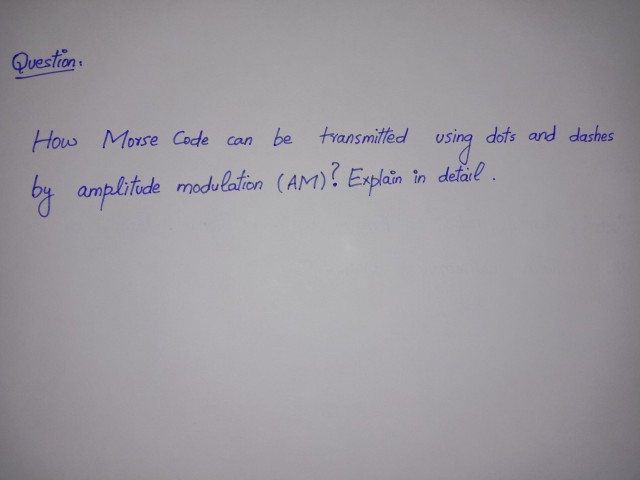 Question:
How Morse Code can be transmitted using dots and dashes
by amplitude modulation (AM)? Explain in detail.